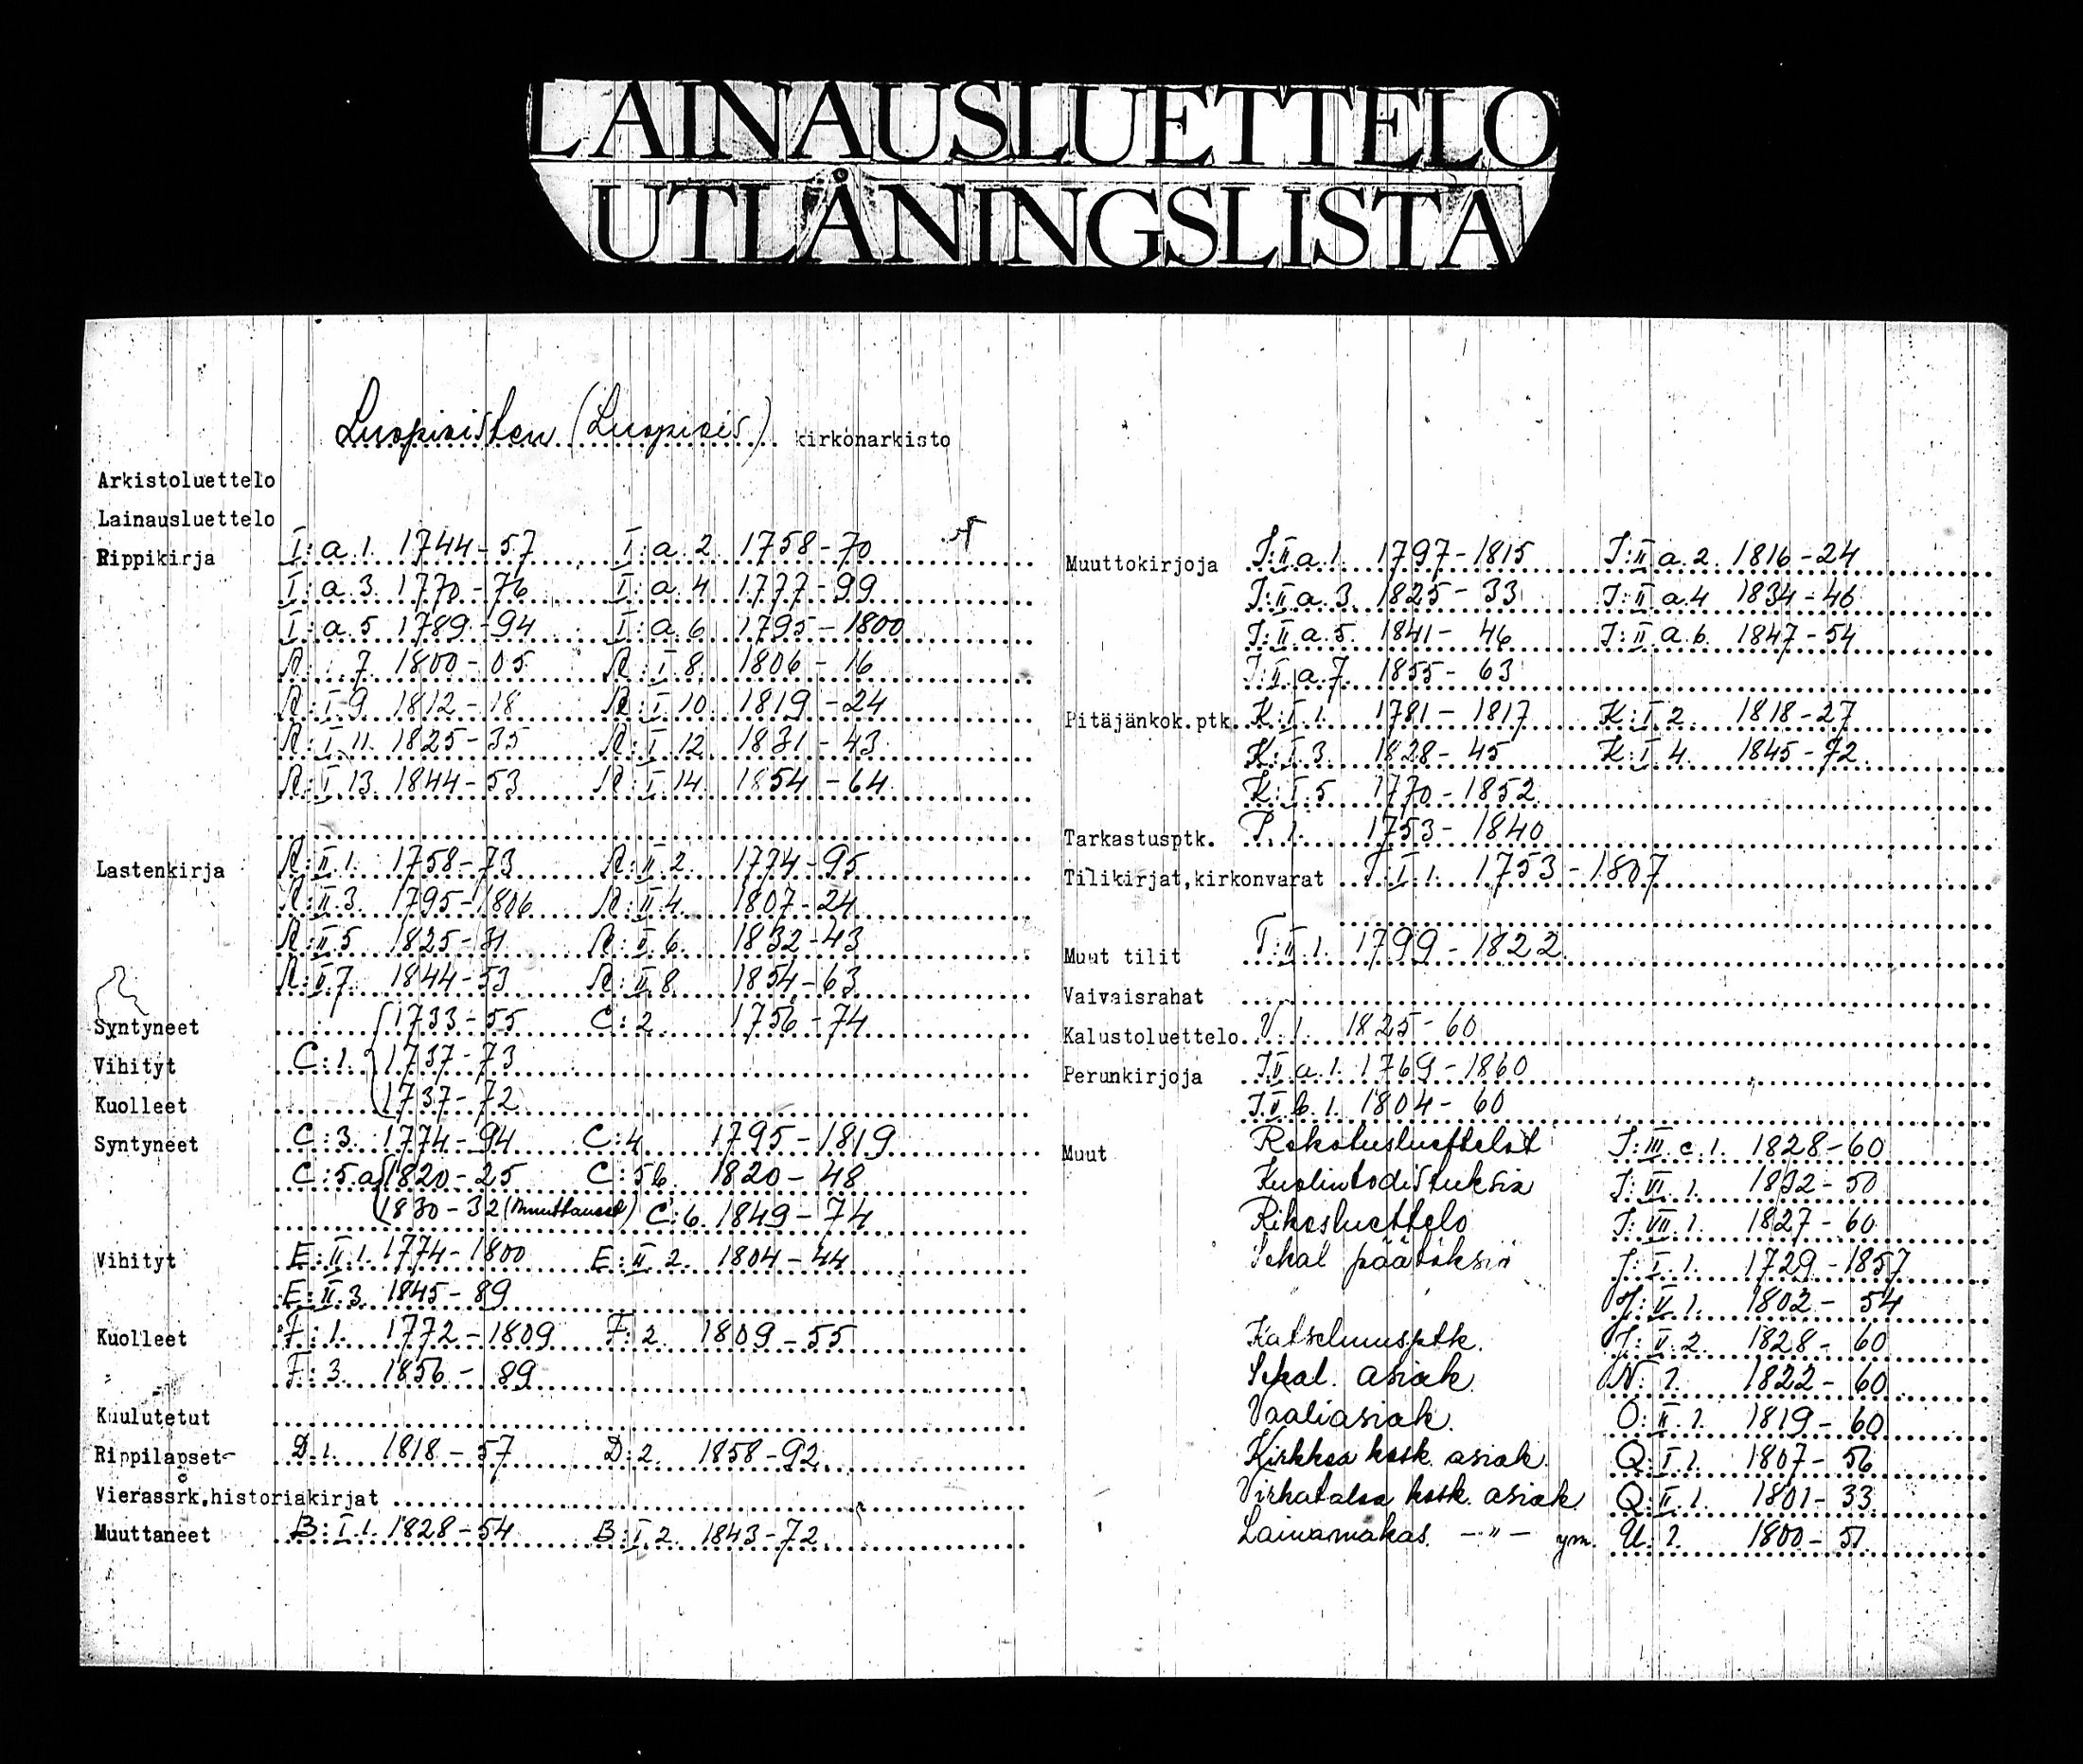 LAINAUSLUETTELO
UTLÅNINGSLISTA
Luopioisten (Luopiois) kirkonarkisto
Arkistoluettelo
Lainausluettelo
Rippikirja I:a.1. 1744-57 I:a.2. 1758-70
I:a.3. 1770-76 I:a.4 1777-99
I:a.5 1789-94 I:a.6. 1795-1800
R: 7. 1800-05 R:I 8. 1806-16
R:I 9 1812-18 R:I 10. 1819-24
R:I 11. 1825-35 R:I 12. 1831-43
R:I 13. 1844-53 R:I 14. 1854-64
Lastenkirja R:II.1. 1758-73 R:II.2. 1774-95
R:II.3. 1795-1806 R:II.4. 1807-24
R:II 5 1825-31 R:II.6. 1832-43
R:II 7 1844-53 R:II.8. 1854-63
Syntyneet 1733-55 C:2 1756-74
Vihityt C:1. 1737-73
Kuolleet 1737-72
Syntyneet C:3. 1774-94 C:4 1795-1819
C:5.a 1820-25 C:5b. 1820-48
1830-32 (muuttaneet) C:6. 1849-74
Vihityt E:II.1. 1774-1800 E:II 2. 1804-44
E:II.3. 1845-89
Kuolleet F:1. 1772-1809 F:2. 1809-55
F:3. 1856-89
Kuulutetut
Rippilapset D.1. 1818-57 D:2. 1858-92
Vierassrk,historiakirjat
Muuttaneet B:I.1. 1828-54 B:I.2. 1843-72
Muuttokirjoja J:II.a.1. 1797-1815 J:II a.2. 1816-24
J:II a.3. 1825-33 J:II a.4 1834-46
J:II a.5. 1841-46 J:II a.6. 1847-54
J:II.a.7. 1855-63
Pitäjänkok.ptk. K:I.1. 1781-1817 K:I.2. 1818-27
K:I.3. 1828-45 K:I.4. 1845-72
K:I.5 1770-1852
Tarkastusptk. P.1. 1753-1840
Tilikirjat,kirkonvarat T:I.1. 1753-1807
Muut tilit T:II.1. 1799-1822
Vaivaisrahat
Kalustoluettelo V.1. 1825-60
Perunkirjoja J.V.a.1. 1769-1860
J.V.b.1. 1804-60
Muut Rokotusluettelot J:III.c.1. 1828-60
Kuolintodistuksia J:VI.1. 1832-50
Rikosluettelo J:VII.1. 1827-60
Sekal päätöksiä J:I.1. 1729-1857
J:V.1. 1802-54
Katselmusptk. J:V.2. 1828-60
Sekal. asiak. N:1. 1822-60
Vaaliasiak. O:II.1. 1819-60
Kirkkoa kosk. asiak. Q:I.1. 1807-56
Virkataloa kosk. asiak Q:II.1. 1801-33
Lainamakas. -"- ym. U:1. 1800-51